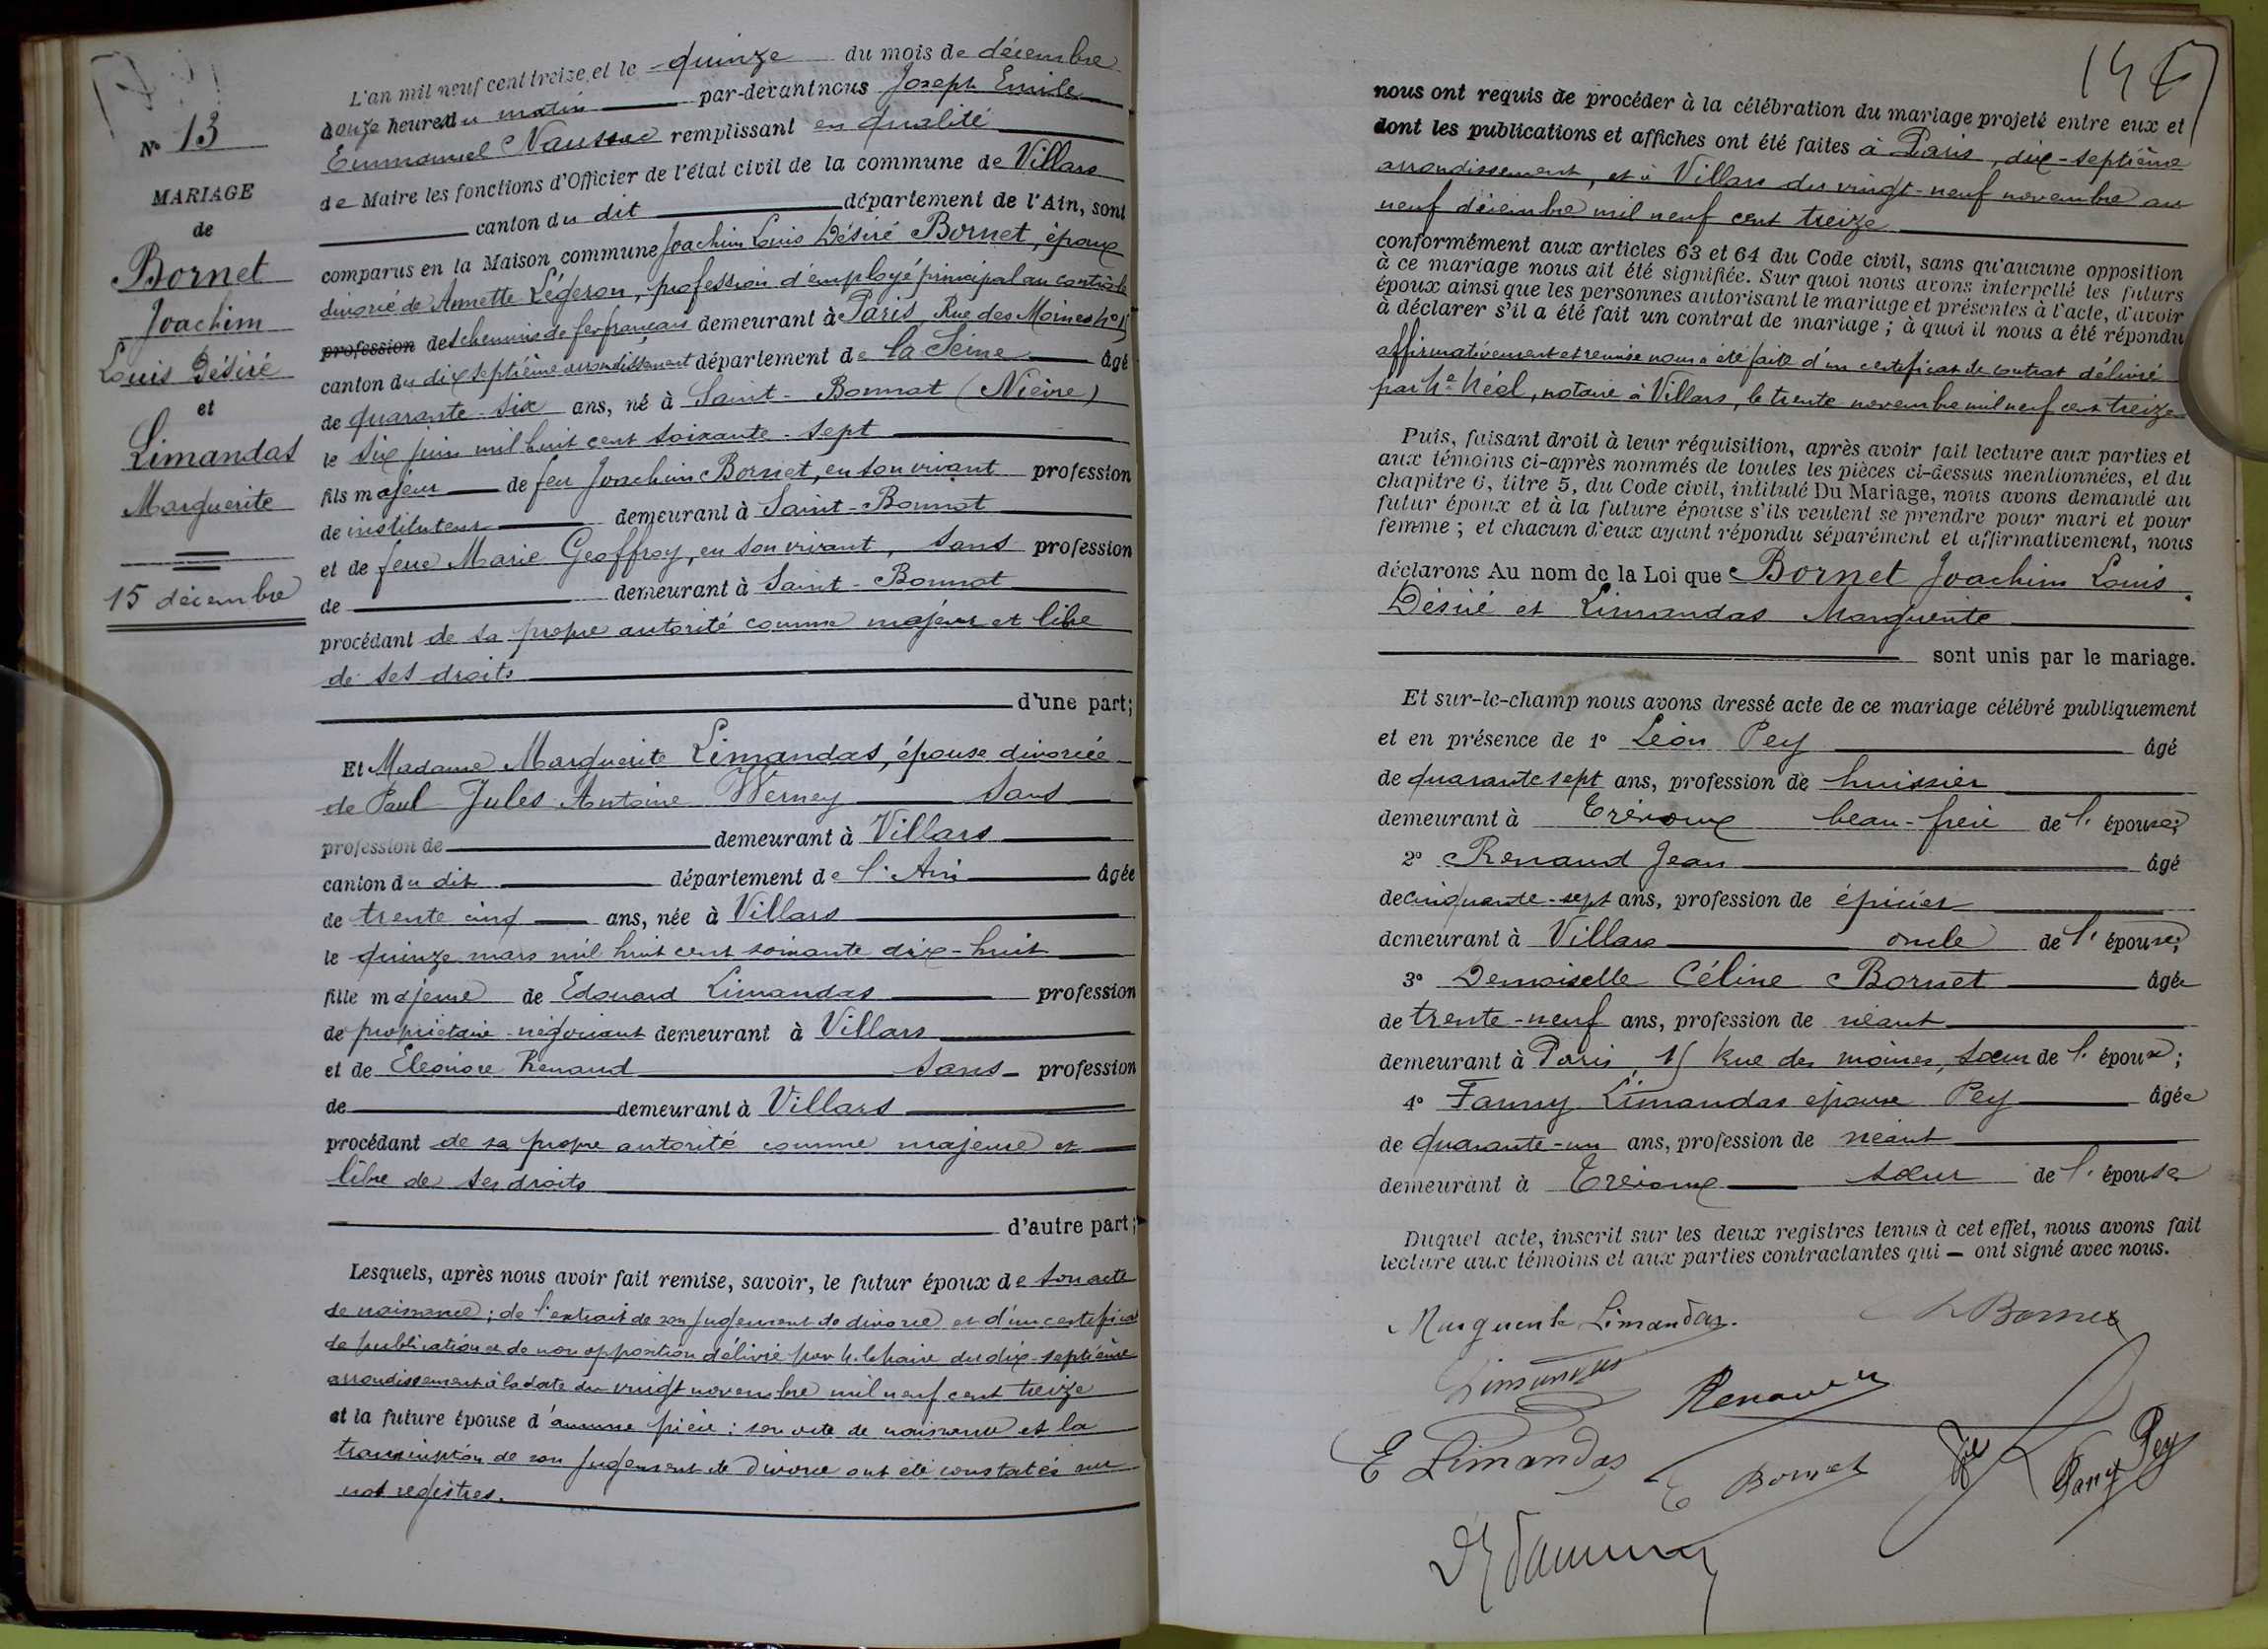 N° 13
MARIAGE
de
Bornet
Joachim
Louis Désiré
et
Limandas
Marguerite
15 décembre
L'an mil neuf cent treize et le quinze du mois de décembre
à onze heures du matin par-devant nous Joseph Emile
Emmanuel remplissant en qualité
de Maire les fonctions d'Officier de l'état civil de la commune de Villars
canton du dit département de l'Ain, sont
comparus en la Maison commune Joachim Louis Désiré Bornet, époux
divorcé de Annette Légeron, profession d'employé principal au contrôle
profession des chemins de fer français demeurant à Paris Rue des Moines n° 15
canton du dix septième arrondissement département de la Seine âgé
de quarante-six ans, né à Saint-Bonnot (Nièvre)
le six juin mil huit cent soixante-sept
fils majeur de feu Joachim Bornet, en son vivant profession
de instituteur demeurant à Saint-Bonnot
et de feue Marie Geoffroy, en son vivant, sans profession
de demeurant à Saint-Bonnot
procédant de sa propre autorité comme majeur et libre
de ses droits
d'une part;
Et Madame Marguerite Limandas, épouse divorcée
de Paul Jules Antoine Werney sans
profession de demeurant à Villars
canton du dit département de l'Ain âgée
de trente cinq ans, née à Villars
le quinze mars mil huit cent soixante dix-huit
fille majeure de Edouard Limandas profession
de propriétaire-négociant demeurant à Villars
et de Eléonore Renaud sans profession
de demeurant à Villars
procédant de sa propre autorité comme majeure et
libre de ses droits
d'autre part;
Lesquels, après nous avoir fait remise, savoir, le futur époux de son acte
de naissance; de l'extrait de son jugement de divorce et d'un certificat
de publication et de non opposition délivré par M. le Maire du dix-septième
arrondissement à la date du vingt novembre mil neuf cent treize
et la future épouse d'aucune pièce: son acte de naissance et la
transcription de son jugement de divorce ont été constatés sur
nos registres.
nous ont requis de procéder à la célébration du mariage projeté entre eux et
dont les publications et affiches ont été faites à Paris, dix-septième
arrondissement, et à Villars du vingt-neuf novembre au
neuf décembre mil neuf cent treize
conformément aux articles 63 et 64 du Code civil, sans qu'aucune opposition
à ce mariage nous ait été signifiée. Sur quoi nous avons interpellé les futurs
époux ainsi que les personnes autorisant le mariage et présentes à l'acte, d'avoir
à déclarer s'il a été fait un contrat de mariage; à quoi il nous a été répondu
affirmativement et remise nous a été faite d'un certificat de contrat délivré
par Me Néel, notaire à Villars, le trente novembre mil neuf cent treize
Puis, faisant droit à leur réquisition, après avoir fait lecture aux parties et
aux témoins ci-après nommés de toutes les pièces ci-dessus mentionnées, et du
chapitre 6, titre 5, du Code civil, intitulé Du Mariage, nous avons demandé au
futur époux et à la future épouse s'ils veulent se prendre pour mari et pour
femme; et chacun d'eux ayant répondu séparément et affirmativement, nous
déclarons Au nom de la Loi que Bornet Joachim Louis
Désiré et Limandas Marguerite
sont unis par le mariage.
Et sur-le-champ nous avons dressé acte de ce mariage célébré publiquement
et en présence de 1° Léon Pey âgé
de quarante sept ans, profession de huissier
demeurant à Trévoux beau-frère de l'épouse;
2° Renaud Jean âgé
de cinquante-sept ans, profession de épicier
demeurant à Villars oncle de l'épouse;
3° Demoiselle Céline Bornet âgée
de trente-neuf ans, profession de néant
demeurant à Paris, 15 Rue des moines, sœur de l'époux;
4° Fanny Limandas épouse Pey âgée
de quarante-un ans, profession de néant
demeurant à Trévoux sœur de l'épouse
Duquel acte, inscrit sur les deux registres tenus à cet effet, nous avons fait
lecture aux témoins et aux parties contractantes qui — ont signé avec nous.
Marguerite Limandas. Bornet
Limandas Renaud
E Limandas C Bornet Fany Pey